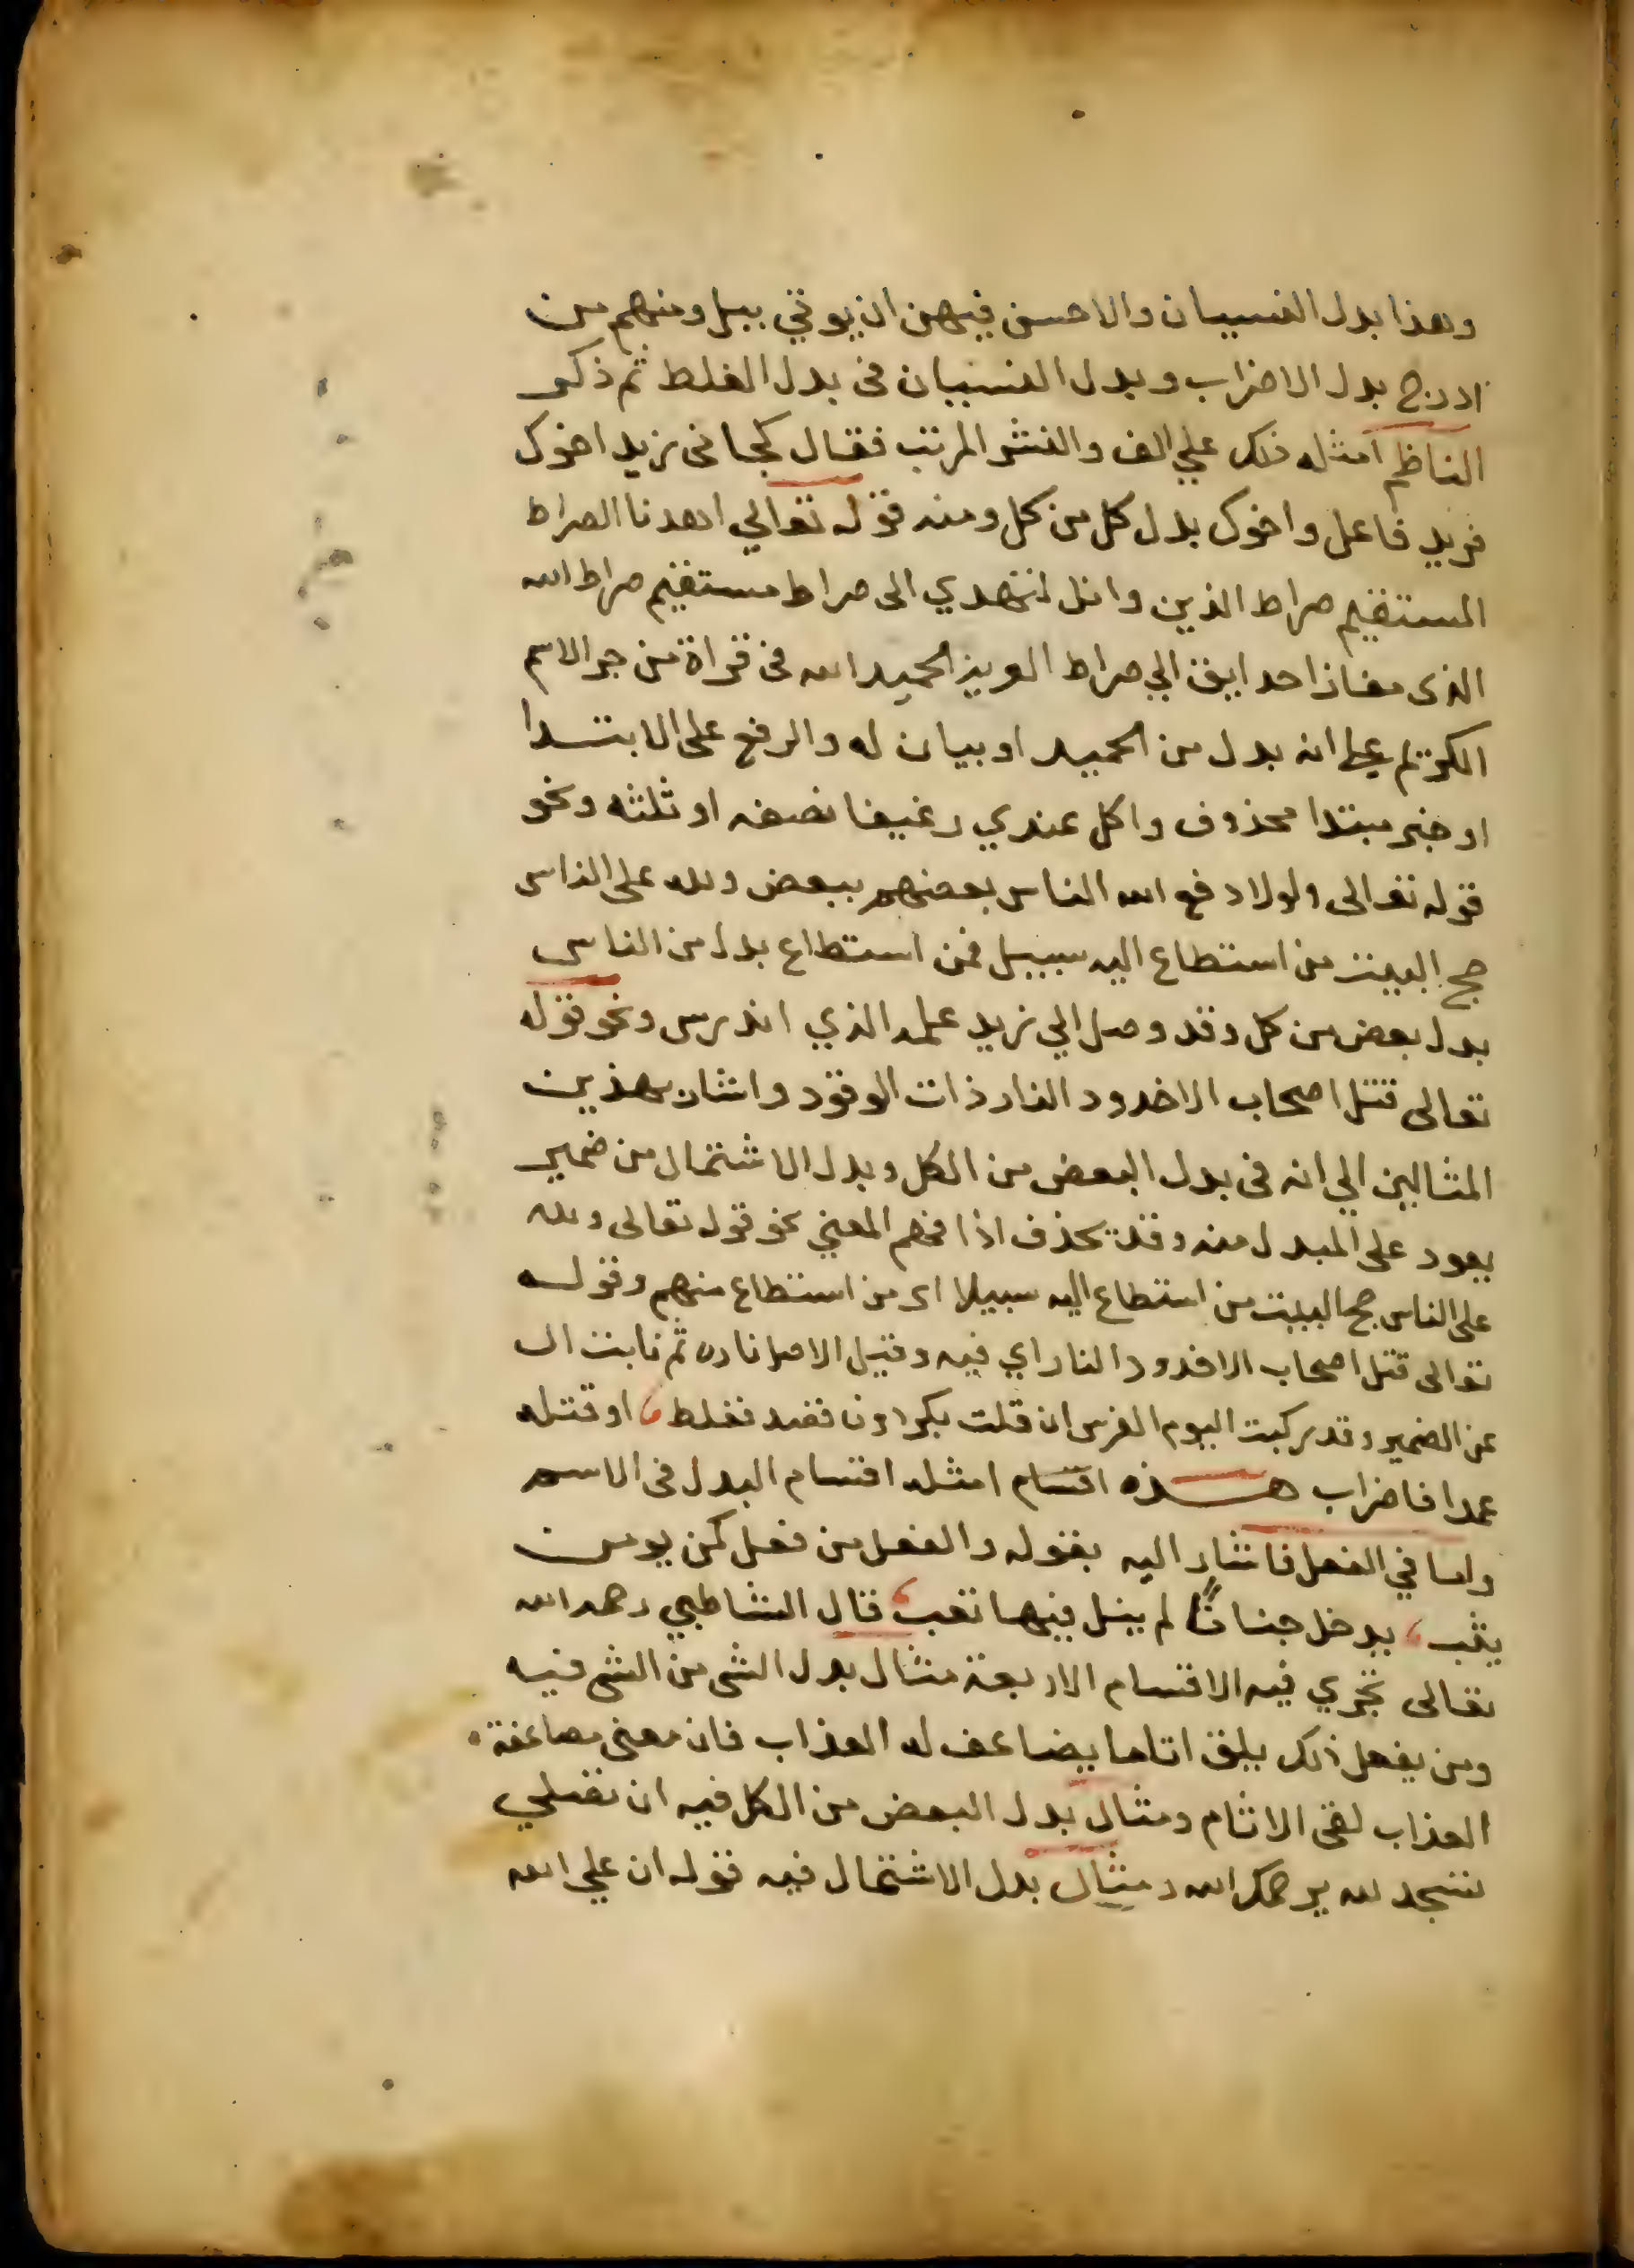 وهذا بدل النسيان والاحسن فيهن ان يوتي ببل ومنهم من
ادرج بدل الاضراب وبدل النسيان في بدل الغلط ثم ذكر
الناظم امثله ذلك علي الف والنشر المرتب فقال كجاني زيد اخوك
فزيد فاعل واخوك بدل كل من كل ومنه قوله تعالي اهدنا الصراط
المستقيم صراط الذين وانك لتهدي الى صراط مستقيم صراط الله
الذي مفازا حدايق الي صراط العزيز الحميد الله في قراة من جر الاسم
الكريم علي انه بدل من الحميد او بيان له والرفع على الابتدا
او خبر مبتدا محذوف واكل عندي رغيفا نصفه او ثلثه ونحو
قوله تعالى ولولا دفع الله الناس بعضهم ببعض ولله على الناس
حج البيت من استطاع اليه سبيل فمن استطاع بدل من الناس
بدل بعض من كل وقد وصل الي زيد علمه الذي اندرس ونحو قوله
تعالى قتل اصحاب الاخدود النار ذات الوقود واشار بهذين
المثالين الي انه في بدل البعض من الكل وبدل الاشتمال من ضمير
يعود على المبدل منه وقد يحذف اذا فهم المعني نحو قوله تعالى ولله
على الناس حج البيت من استطاع اليه سبيلا اى من استطاع منهم وقوله
تعالى قتل اصحاب الاخدود النار اي فيه وقيل الاصل ناره ثم نابت ال
عن الضمير وقد ركبت اليوم الفرس ان قلت بكرا دون قصد فغلط، او قتله
عمدا فاضراب هذه اقسام امثله اقسام البدل في الاسم
واما في الفعل فاشار اليه بقوله والفعل من فعل كمن يومن
يثب، يدخل جنات لم ينل فيها تعب، قال الشاطبي رحمه الله
تعالى تجري فيه الاقسام الاربعة مثال بدل الشى من الشى فيه
ومن يفعل ذلك يلق اثاما يضاعف له العذاب فان معنى مضاعفة
العذاب لقى الاثام ومثال بدل البعض من الكل فيه ان تصلي
تسجد لله يرحمك الله ومثال بدل الاشتمال فيه قوله ان علي الله